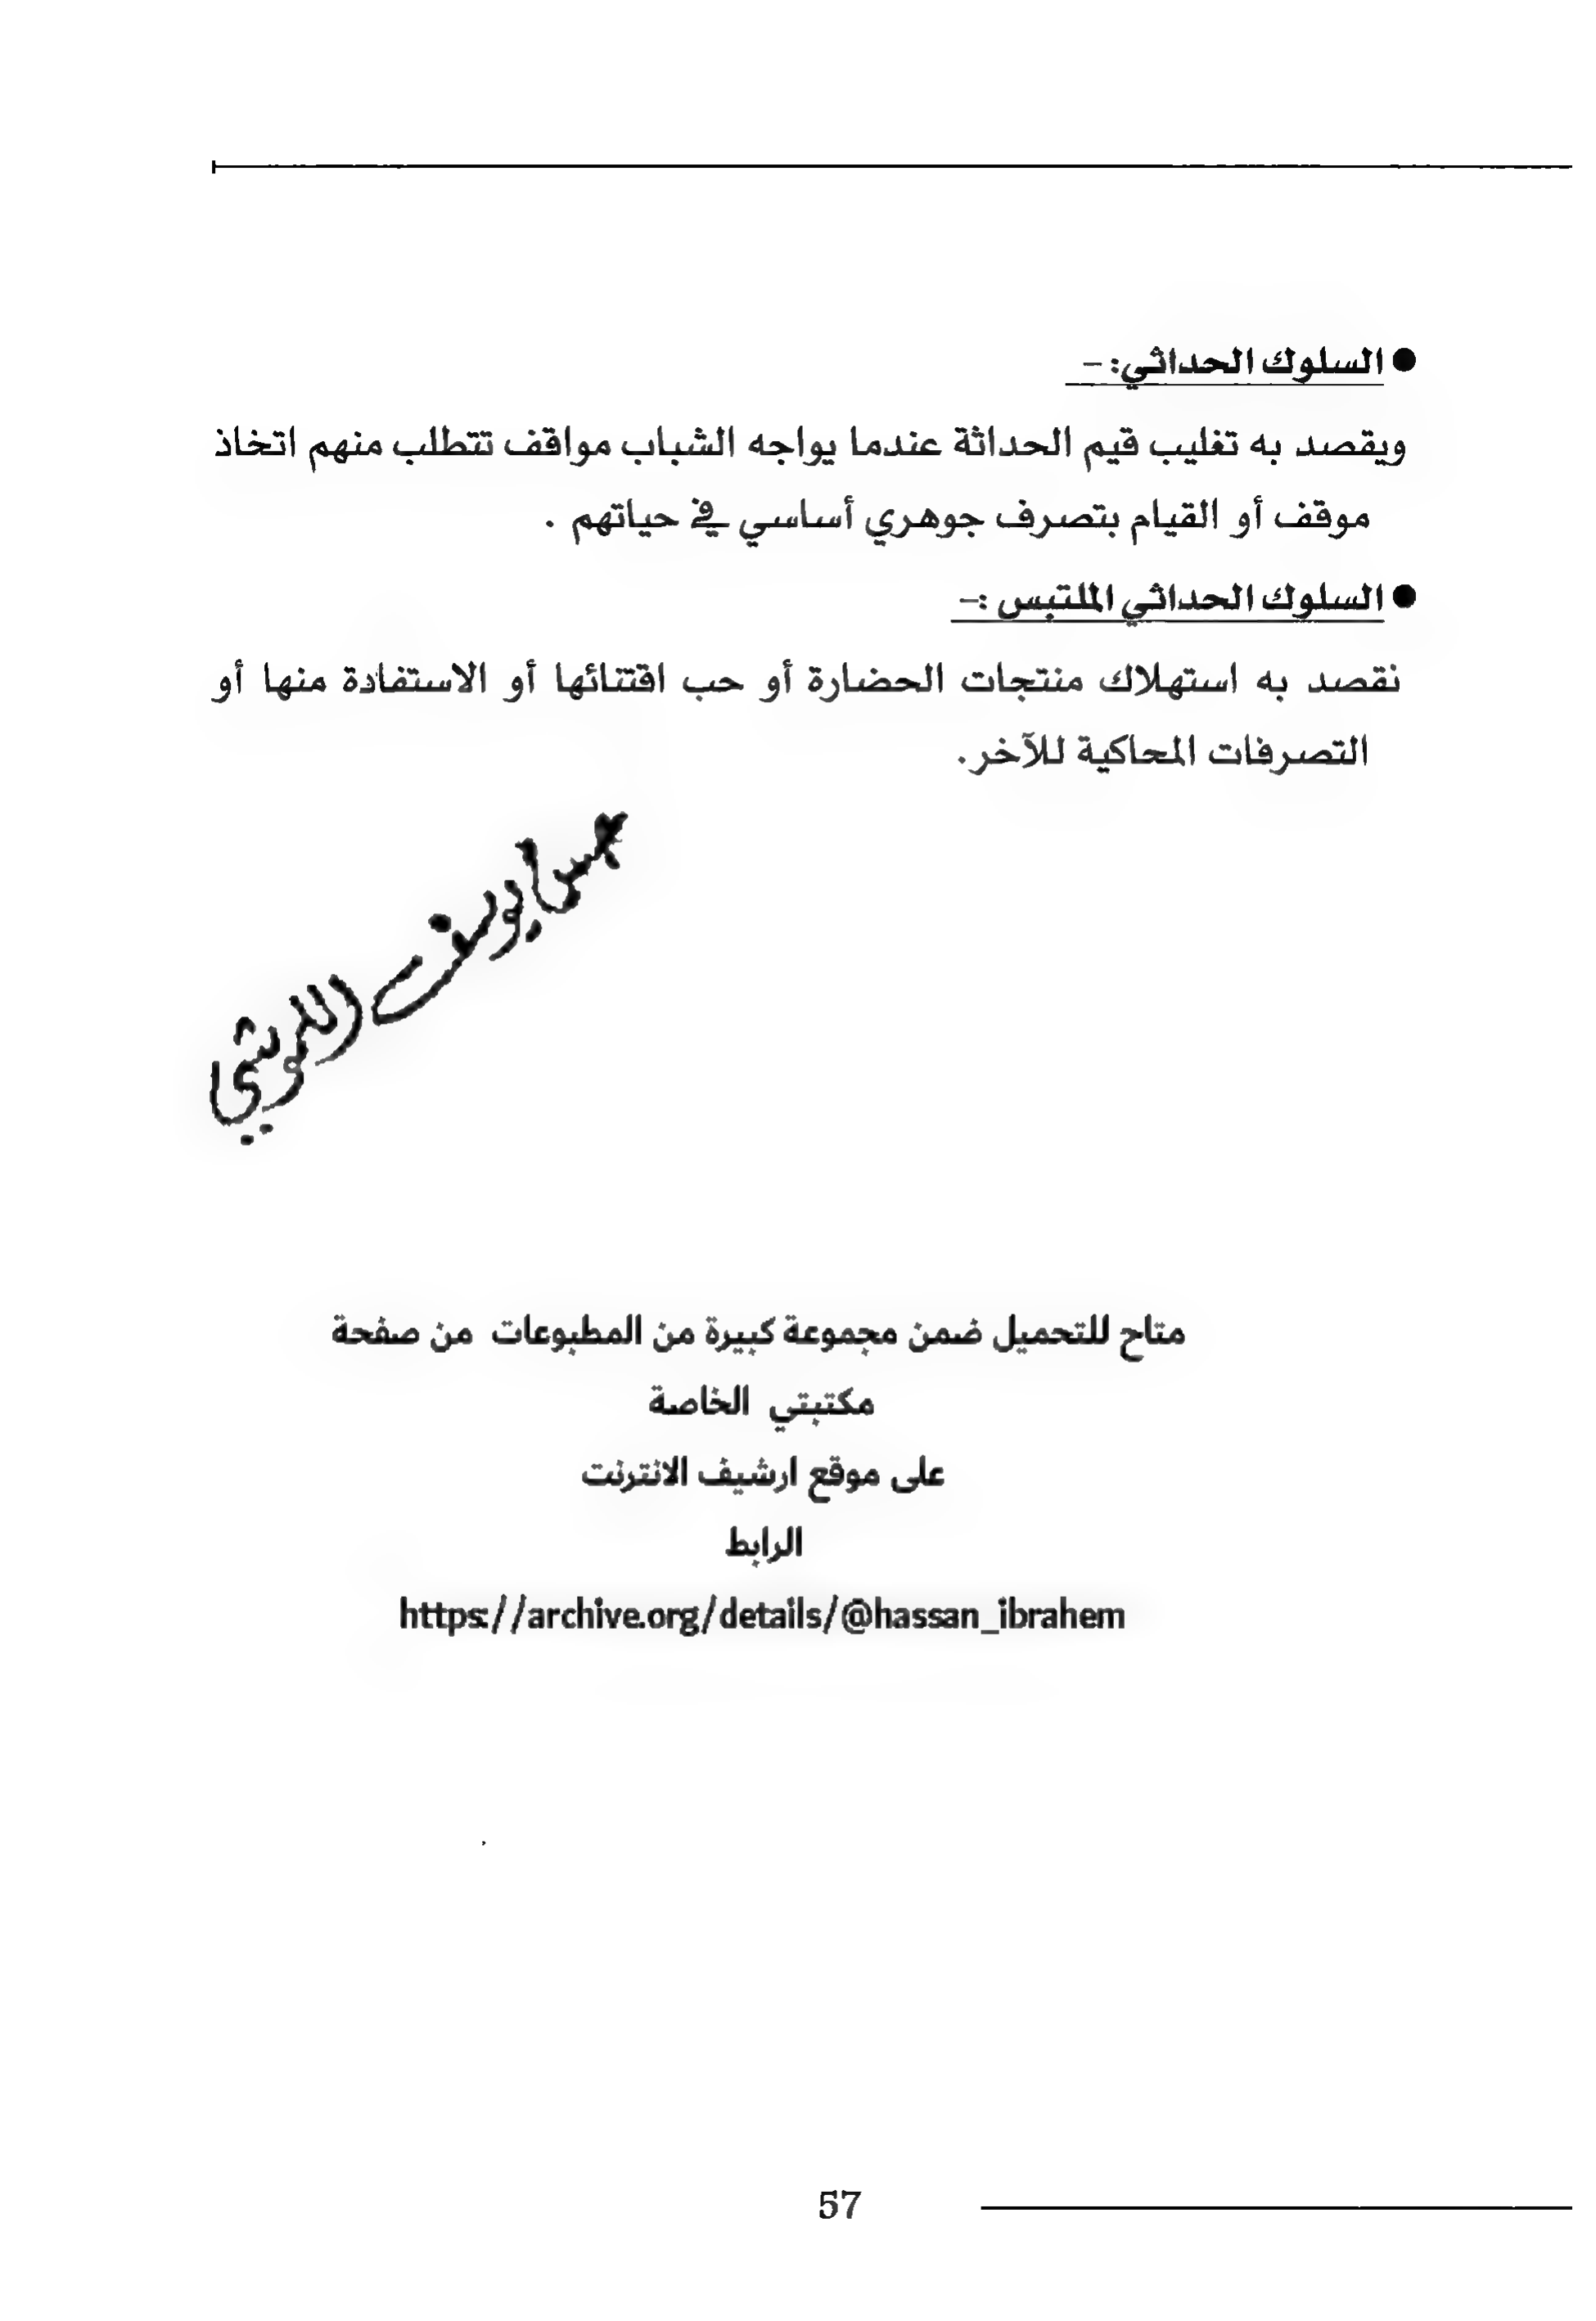 ● السلوك الحداثي: –
ويقصد به تغليب قيم الحداثة عندما يواجه الشباب مواقف تتطلب منهم اتخاذ
موقف أو القيام بتصرف جوهري أساسي في حياتهم .
● السلوك الحداثي الملتبس :–
نقصد به استهلاك منتجات الحضارة أو حب اقتنائها أو الاستفادة منها أو
التصرفات المحاكية للآخر.
يوسف
متاح للتحميل ضمن مجموعة كبيرة من المطبوعات من صفحة
مكتبتي الخاصة
على موقع ارشيف الانترنت
الرابط
https://archive.org/details/@hassan_ibrahem
57